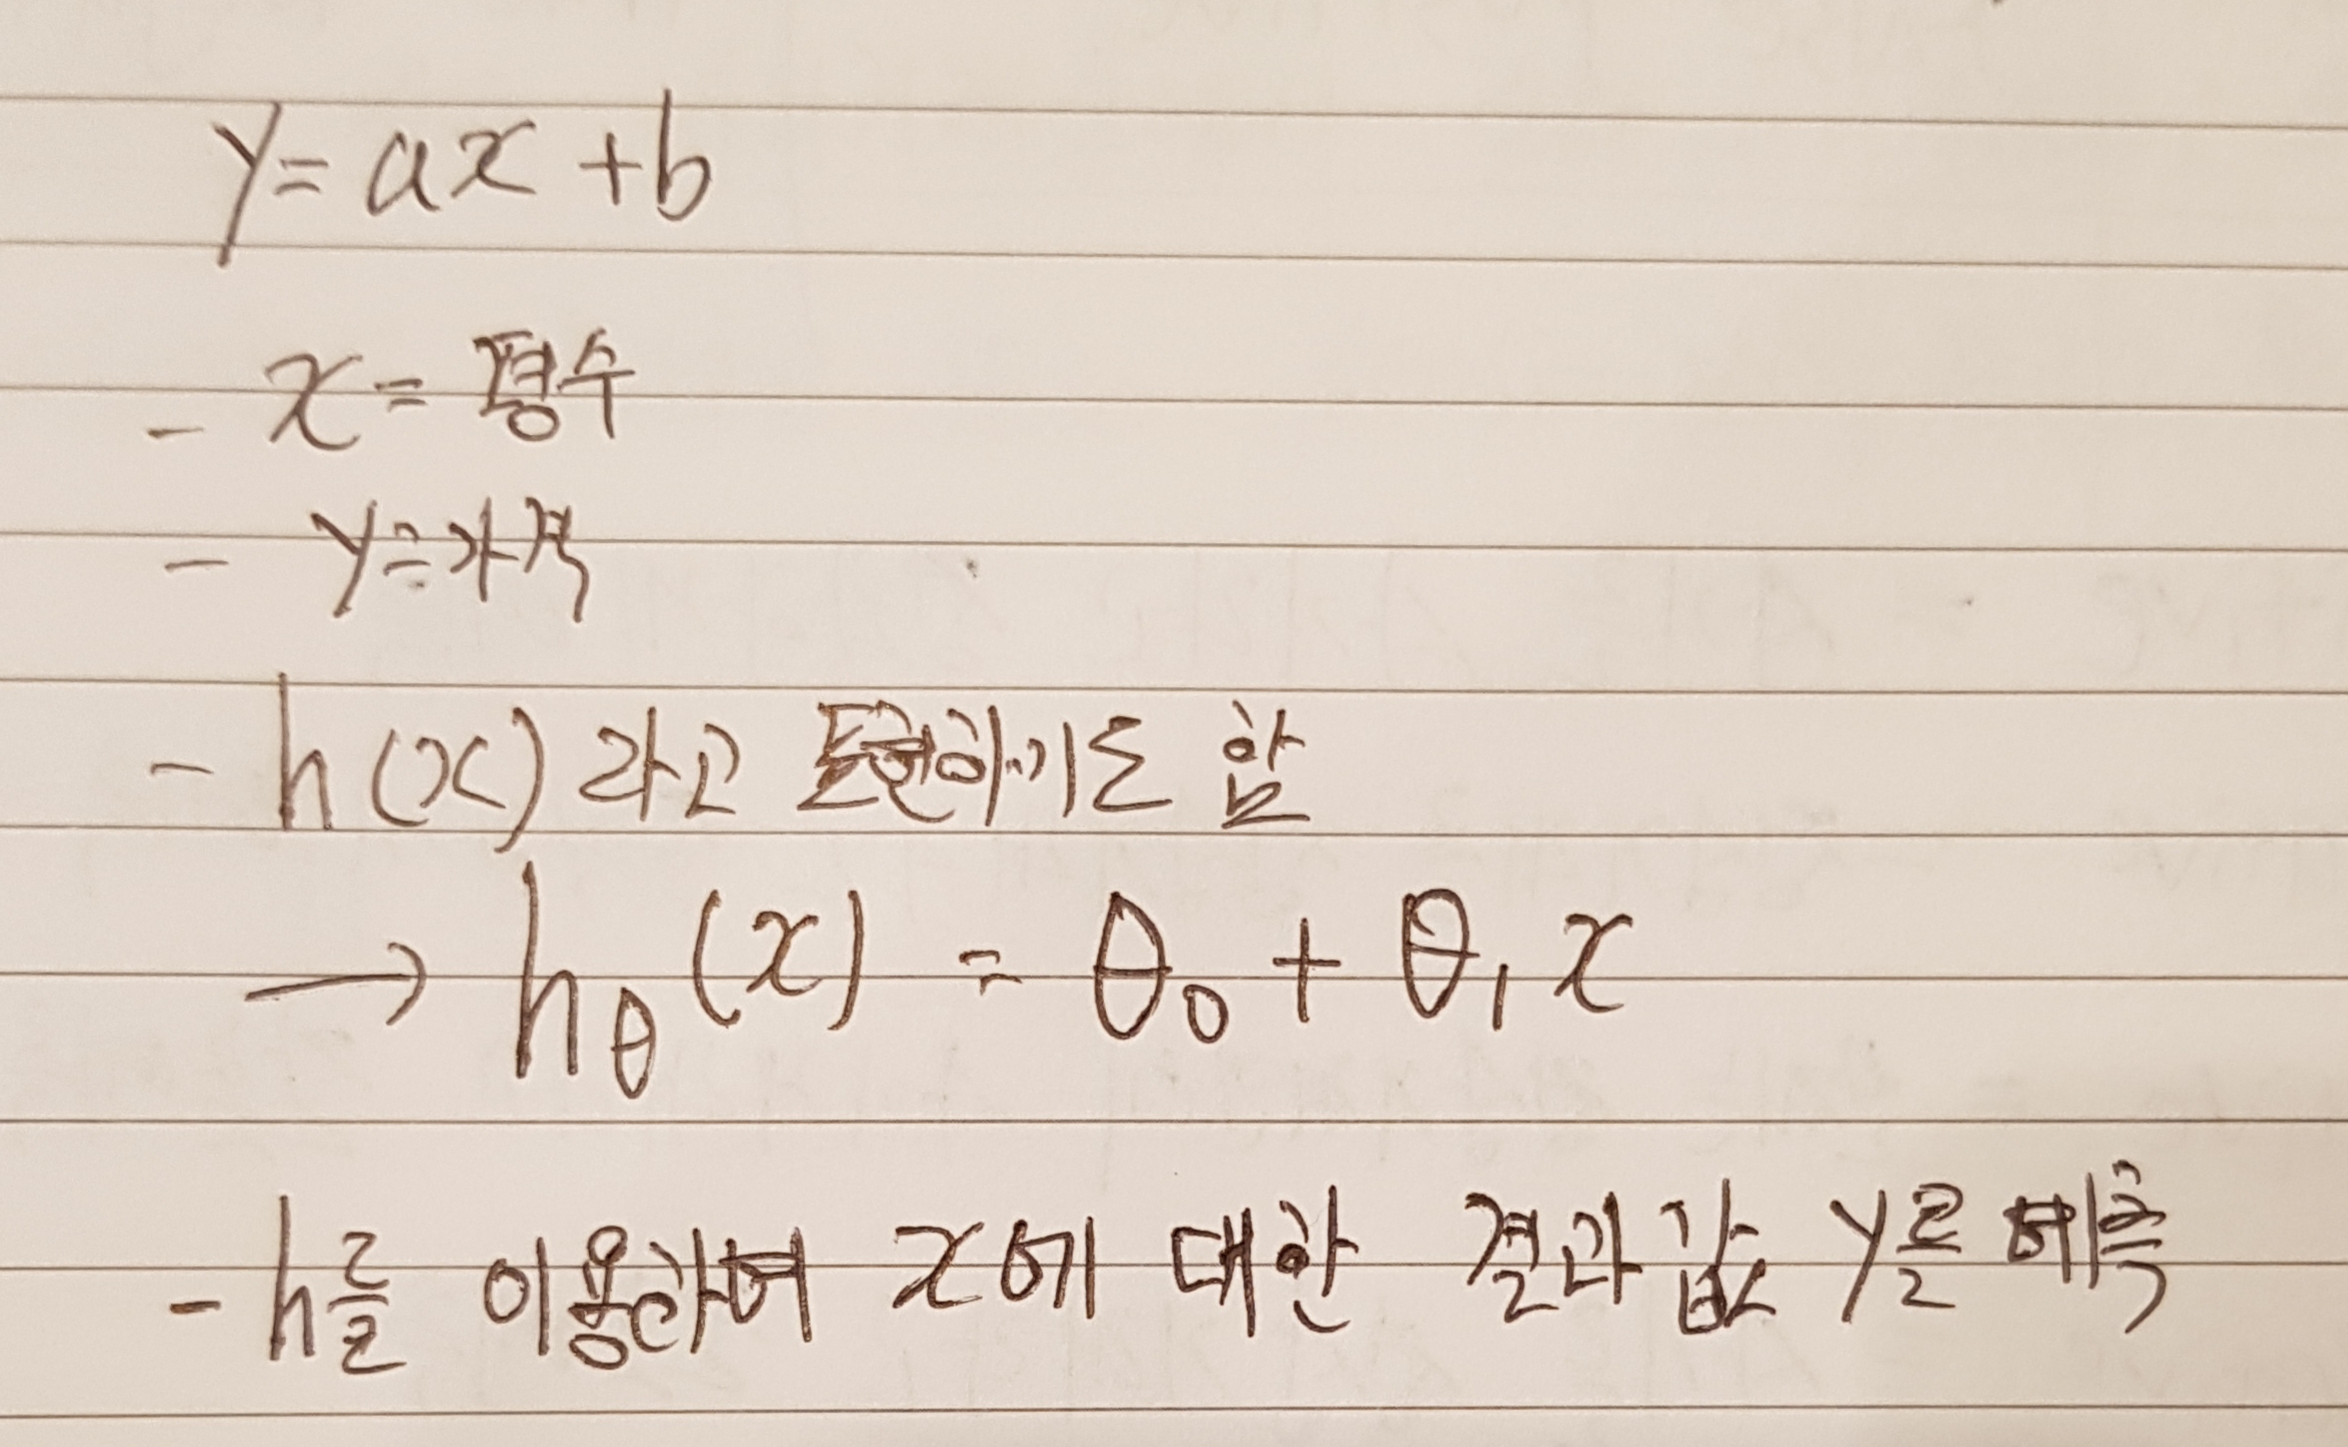 y= ax +b
- x= 평수
- y=가격
- h(x) 라고 표현하기도 함
→ hθ(x) = θ₀ + θ₁x
- h를 이용하여 x에 대한 결과값 y를 예측